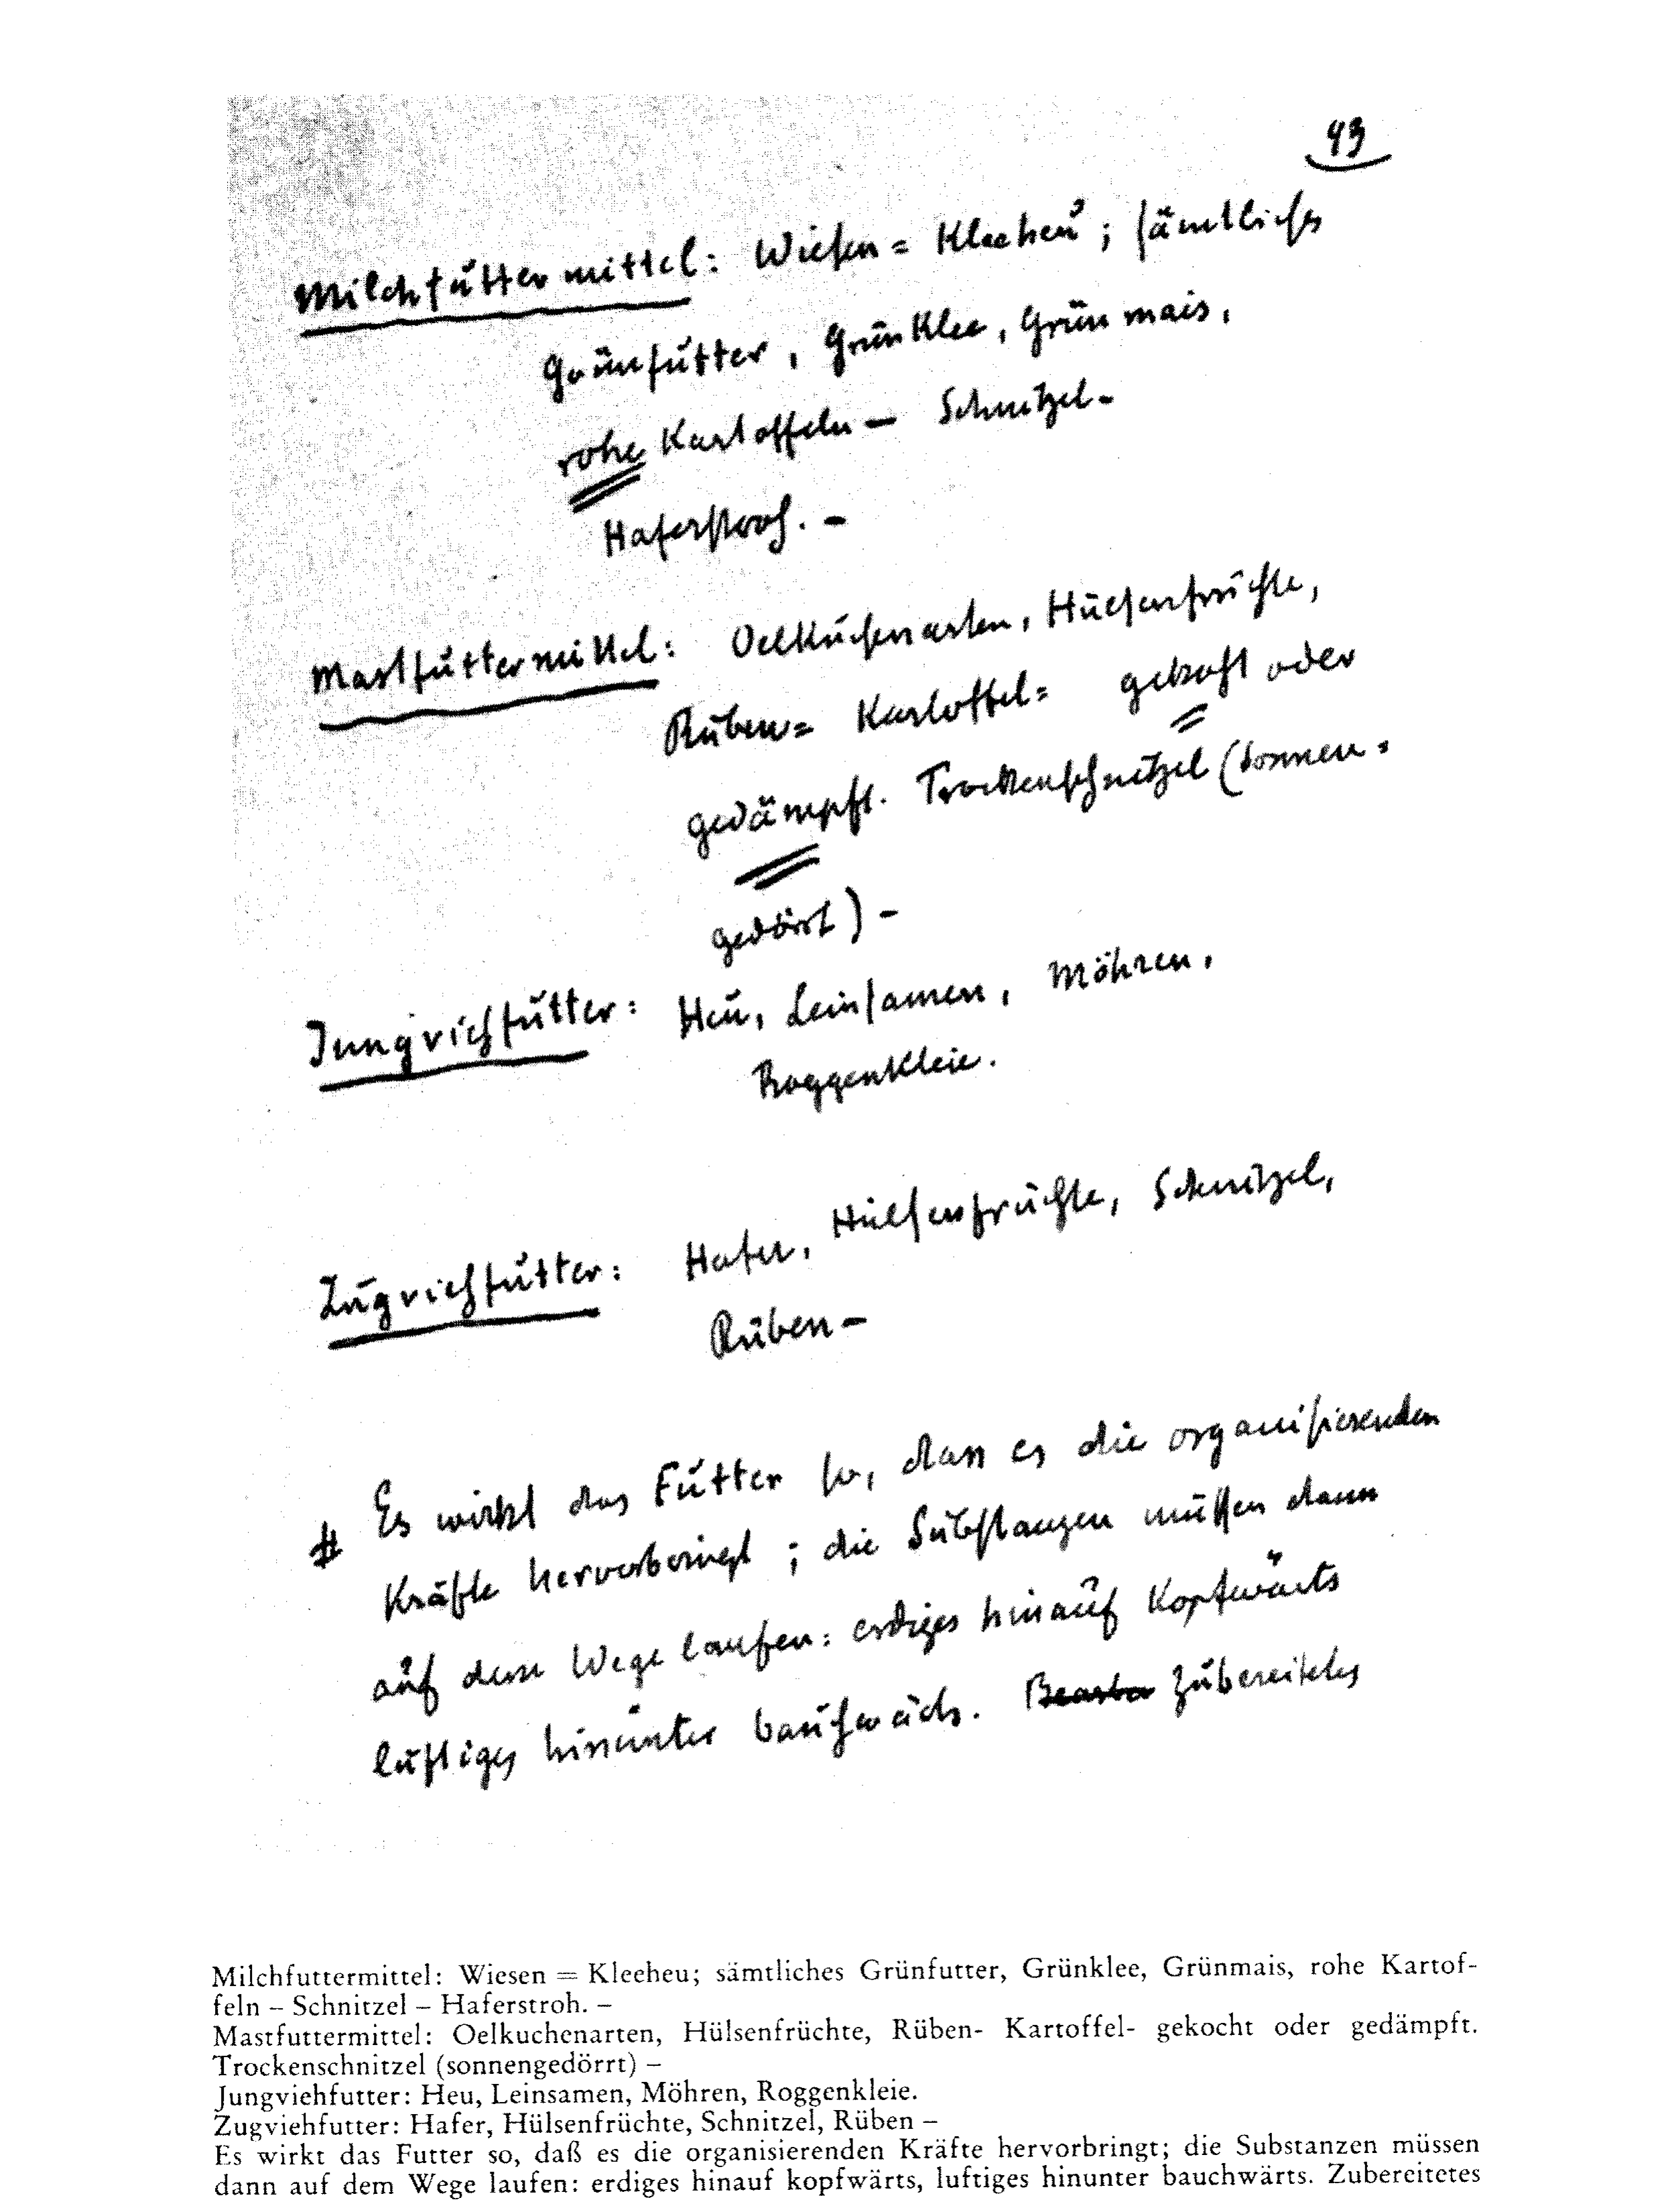 43
Milchfuttermittel: Wiesen = Kleeheu; sämtliches
Grünfutter, Grünklee, Grünmais,
rohe Kartoffeln – Schnitzel –
Haferstroh. –
Mastfuttermittel: Oelkuchenarten, Hülsenfrüchte,
Rüben= Kartoffel= gekocht oder
gedämpft. Trockenschnitzel (sonnen=
gedörrt) –
Jungviehfutter: Heu, Leinsamen, Möhren,
Roggenkleie.
Zugviehfutter: Hafer, Hülsenfrüchte, Schnitzel,
Rüben –
# Es wirkt das Futter so, dass es die organisierenden
Kräfte hervorbringt; die Substanzen müssen dann
auf dem Wege laufen: erdiges hinauf kopfwärts
luftiges hinunter bauchwärts. Zubereitetes
Milchfuttermittel: Wiesen = Kleeheu; sämtliches Grünfutter, Grünklee, Grünmais, rohe Kartof-
feln – Schnitzel – Haferstroh. –
Mastfuttermittel: Oelkuchenarten, Hülsenfrüchte, Rüben- Kartoffel- gekocht oder gedämpft.
Trockenschnitzel (sonnengedörrt) –
Jungviehfutter: Heu, Leinsamen, Möhren, Roggenkleie.
Zugviehfutter: Hafer, Hülsenfrüchte, Schnitzel, Rüben –
Es wirkt das Futter so, daß es die organisierenden Kräfte hervorbringt; die Substanzen müssen
dann auf dem Wege laufen: erdiges hinauf kopfwärts, luftiges hinunter bauchwärts. Zubereitetes